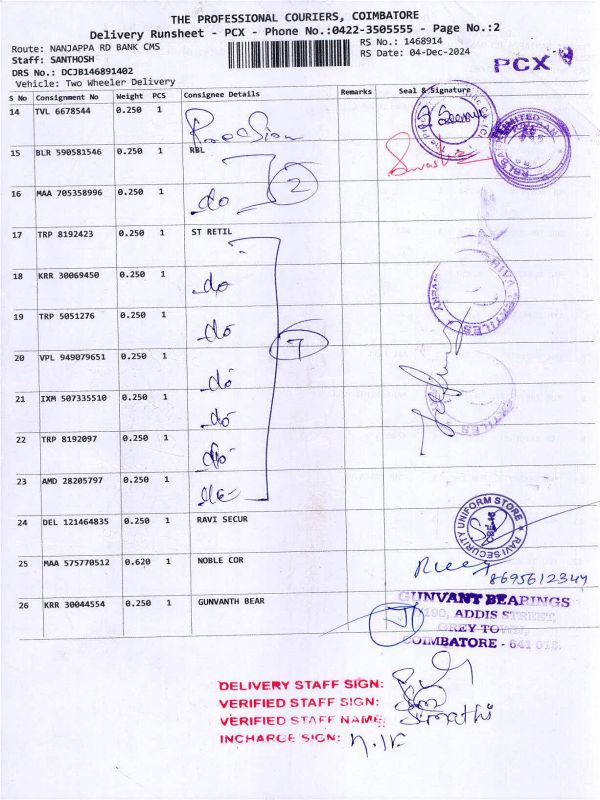 THE PROFESSIONAL COURIERS, COIMBATORE
Delivery Runsheet - PCX - Phone No.:0422-3505555 - Page No.:2
Route: NANJAPPA RD BANK CMS
Staff: SANTHOSH
DRS No.: DCJB146891402
Vehicle: Two Wheeler Delivery
RS No.: 1468914
RS Date: 04-Dec-2024
PCX
S No Consignment No Weight PCS Consignee Details Remarks Seal & Signature
14 TVL 6678544 0.250 1
15 BLR 590581546 0.250 1 RBL
16 MAA 705358996 0.250 1 do
2
17 TRP 8192423 0.250 1 ST RETIL
18 KRR 30069450 0.250 1 do
19 TRP 5051276 0.250 1 do
7
20 VPL 949079651 0.250 1 do
21 IXM 507335510 0.250 1 do
22 TRP 8192097 0.250 1 do
23 AMD 28205797 0.250 1 do
24 DEL 121464835 0.250 1 RAVI SECUR
RAVI SECURITY UNIFORM STORE
CBE-18
25 MAA 575770512 0.620 1 NOBLE COR
8695612344
26 KRR 30044554 0.250 1 GUNVANTH BEAR
GUNVANT BEARINGS
ADDIS STREET,
GREY TOWN,
COIMBATORE - 641 018.
DELIVERY STAFF SIGN:
VERIFIED STAFF SIGN:
VERIFIED STAFF NAME:
INCHARGE SIGN: